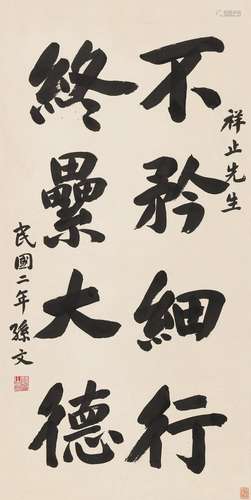 祥止先生
不矜細行
終纍大德
民國二年 孫文